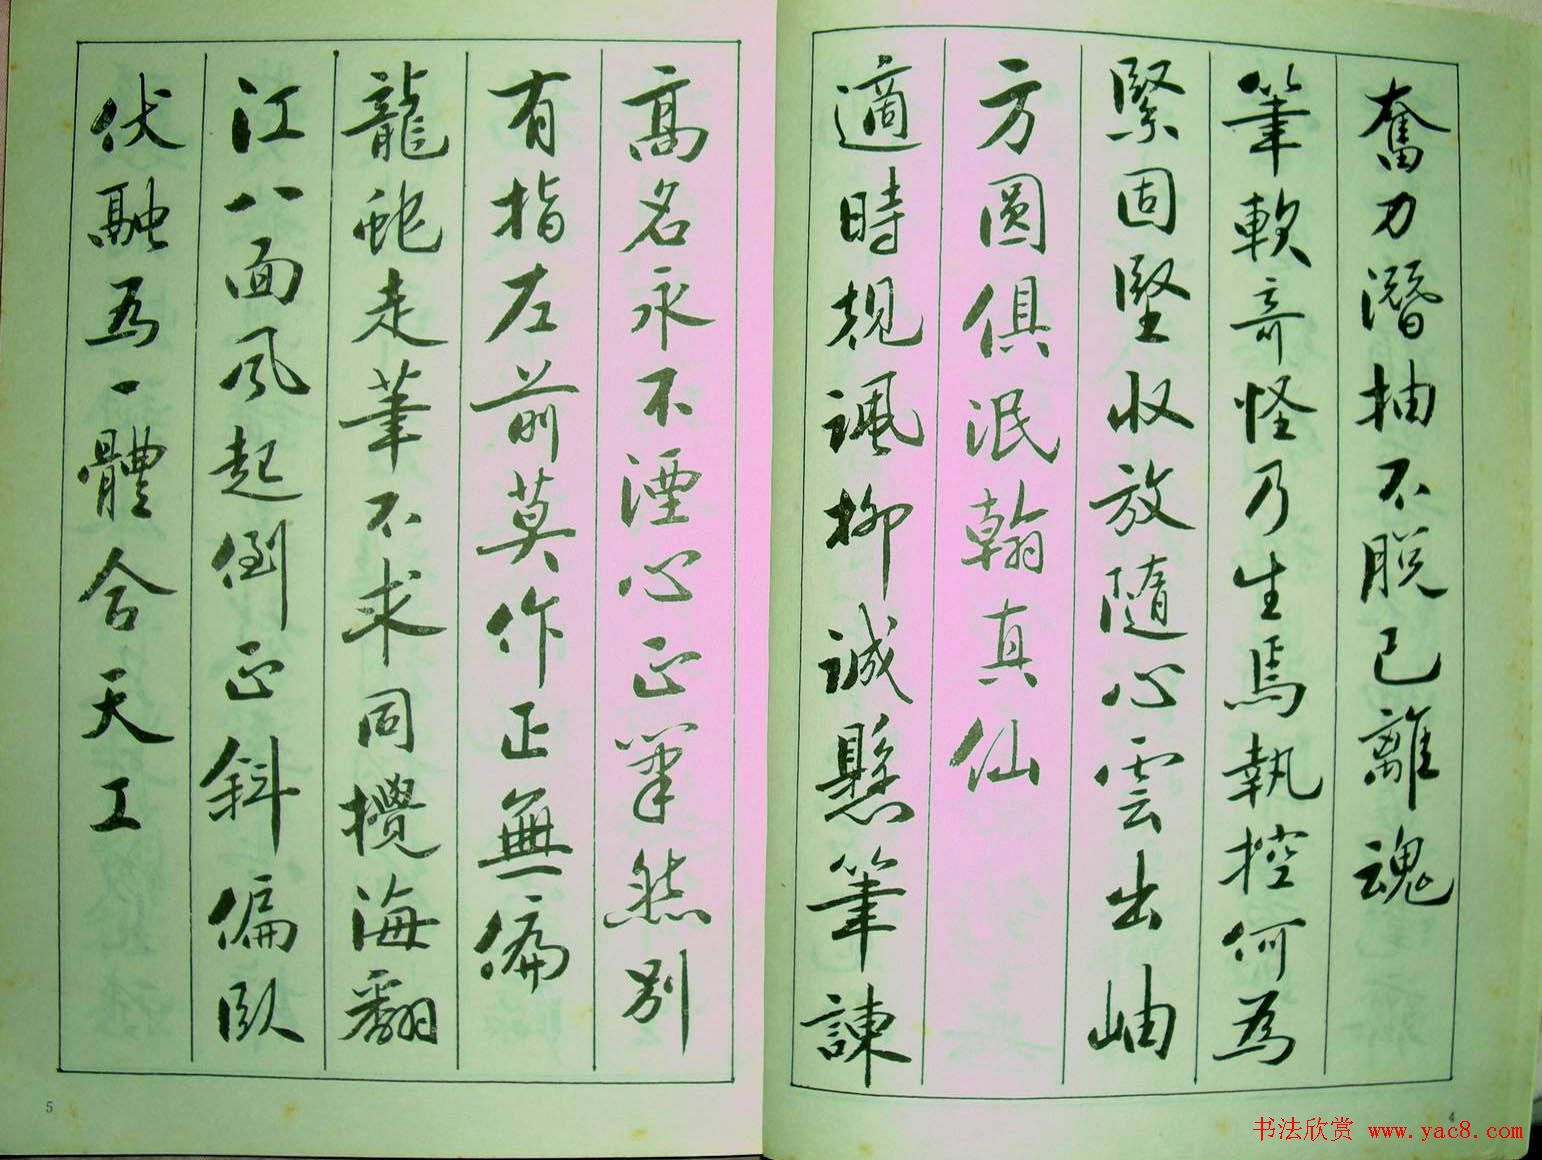 奮力潛抽不脱已離魂
筆軟奇怪乃生焉執控何為
緊固堅收放隨心雲出岫
方圓俱泯翰真仙
適時規諷柳誠懸筆諫
高名永不湮心正筆然別
有指左前莫作正無偏
龍蛇走筆不求同攪海翻
江八面風起倒正斜偏臥
伏融為一體合天工
5
4
书法欣赏 www.yac8.com